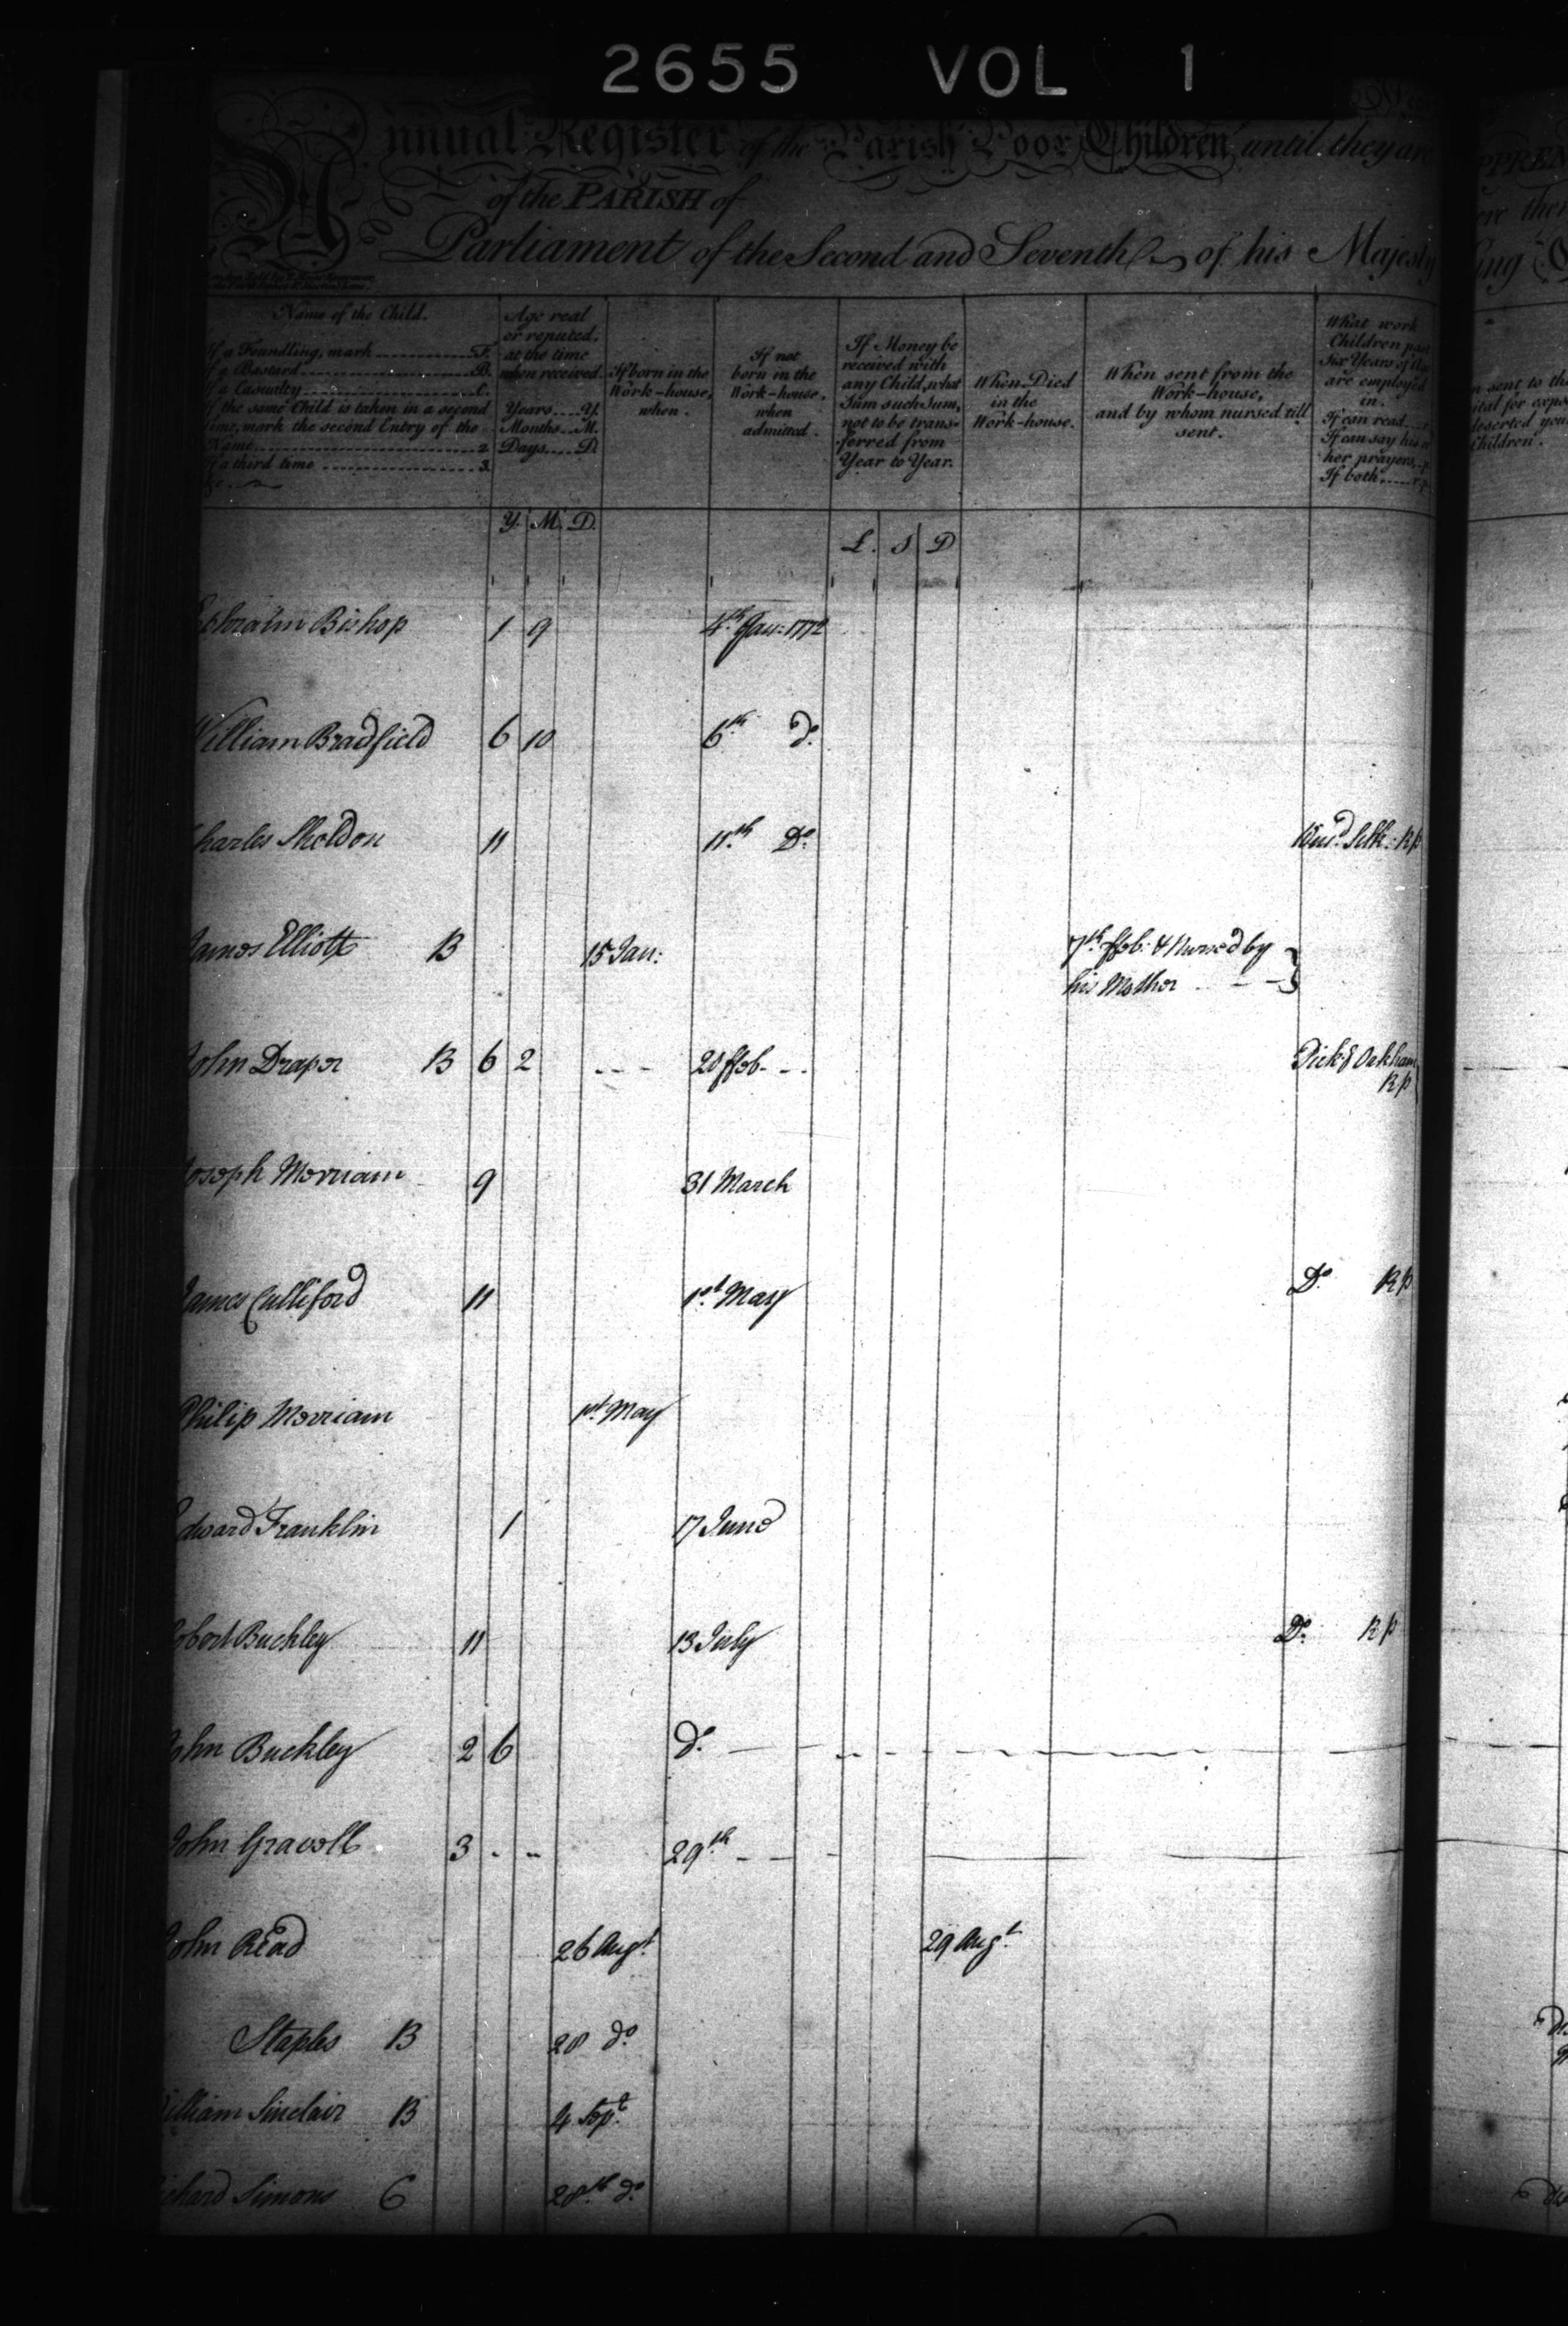 2655 VOL 1
Annual Register of the Parish Poor Children until they are
of the PARISH of
Parliament of the Second and Seventh of his Majesty
Name of the Child.
If a Foundling, mark F.
If a Bastard B.
If a Casualty C.
If the same Child is taken in a second
time, mark the second Entry of the
Name 2
If a third time 3
&c.
Age real
or reputed,
at the time
when received.
Years Y.
Months M.
Days D.
If born in the
Work-house,
when.
If not
born in the
Work-house,
when
admitted.
If Money be
received with
any Child, what
Sum such Sum,
not to be trans-
ferred from
Year to Year.
When Died
in the
Work-house.
When sent from the
Work-house,
and by whom nursed till
sent.
What work
Children past
Six Years of Age
are employed
in.
If can read r.
If can say his or
her prayers, p.
If both r.p.
Y. M. D.
£. S D
Ephraim Bishop 1 9 4th Jan: 1772
William Bradfield 6 10 6th do.
Charles Sheldon 11 11th Do. Wind Silk: R p
James Elliott B 15 Jan: 7th ffeb: & Nursed by
his Mother
John Draper B 6 2 20 ffeb. Pick'g Oakham
R p
Joseph Merriam 9 31 March
James Culliford 11 1st May Do. R p
Philip Merriam 1st May
Edward Franklin 1 17 June
Robert Buckley 11 13 July Do. R p
John Buckley 2 6 do.
John Gravell 3 29th
John Read 26 Augt. 29 Augt.
Staples B 28 do.
William Sinclair B 4 Sept.
Richard Simons 6 28th do.